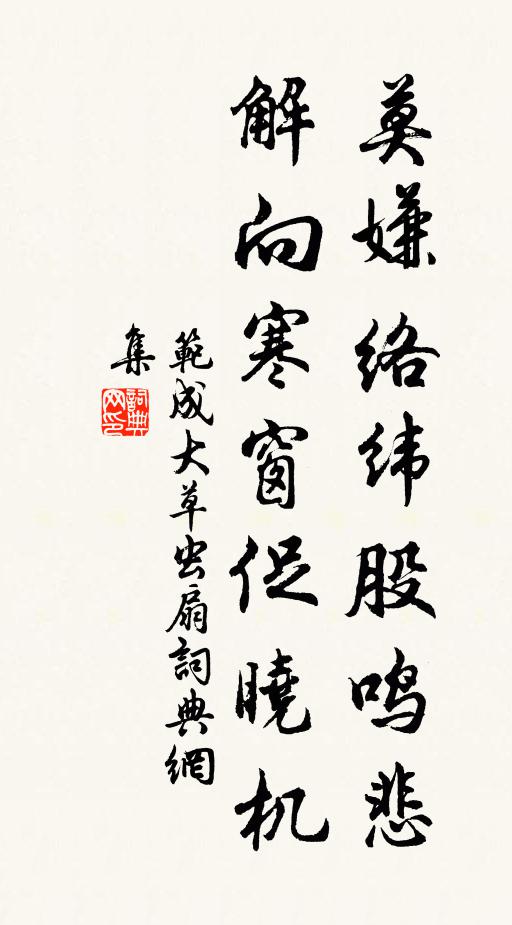 莫嫌络纬股鸣悲
解向寒窗促曉机
範成大草虫扇詞典網
集
詞典网印